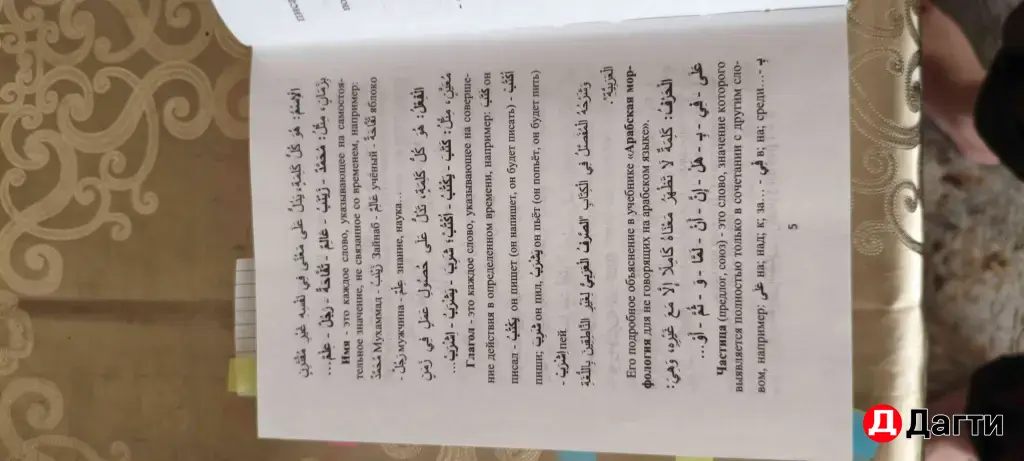 الاِسْمُ: هُوَ كُلُّ كَلِمَةٍ، يَدُلُّ عَلَى مَعْنًى فِي نَفْسِهِ غَيْرِ مُقْتَرِنٍ
بِزَمَانٍ، مِثْلُ: مُحَمَّدٌ - زَيْنَبُ - عَالِمٌ - تُفَّاحَةٌ - رَجُلٌ - عِلْمٌ...
Имя - это каждое слово, указывающее на самостоя-
тельное значение, не связанное со временем, например:
مُحَمَّدٌ Мухаммад - زَيْنَبُ Зайнаб - عَالِمٌ учёный - تُفَّاحَةٌ яблоко
- رَجُلٌ мужчина - عِلْمٌ знание, наука...
الفِعْلُ: هُوَ كُلُّ كَلِمَةٍ، تَدُلُّ عَلَى حُصُولِ عَمَلٍ فِي زَمَنٍ
مُعَيَّنٍ، مِثْلُ: كَتَبَ - يَكْتُبُ - اُكْتُبْ؛ شَرِبَ - يَشْرَبُ - اِشْرَبْ...
Глагол - это каждое слово, указывающее на соверше-
ние действия в определенном времени, например: كَتَبَ он
писал - يَكْتُبُ он пишет (он напишет, он будет писать) - اُكْتُبْ
пиши; شَرِبَ он пил, يَشْرَبُ он пьёт (он попьёт, он будет пить)
- اِشْرَبْ пей.
وَشَرْحُهُ المُفَصَّلُ فِي الكِتَابِ "الصَّرْفُ العَرَبِيُّ لِغَيْرِ النَّاطِقِينَ بِاللُّغَةِ
العَرَبِيَّةِ".
Его подробное объяснение в учебнике «Арабская мор-
фология для не говорящих на арабском языке».
الحَرْفُ: كَلِمَةٌ لَا تَظْهَرُ مَعْنَاهُ كَامِلًا إِلَّا مَعَ غَيْرِهِ، وَهِيَ:
عَلَى - فِي - بِـ - هَلْ - إِنْ - أَنْ - لَمَّا - وَ - ثُمَّ - أَوْ...
Частица (предлог, союз) - это слово, значение которого
выявляется полностью только в сочетании с другим сло-
вом, например: عَلَى на; над; к; за... - فِي в; на; среди... بِـ
5
Дагти